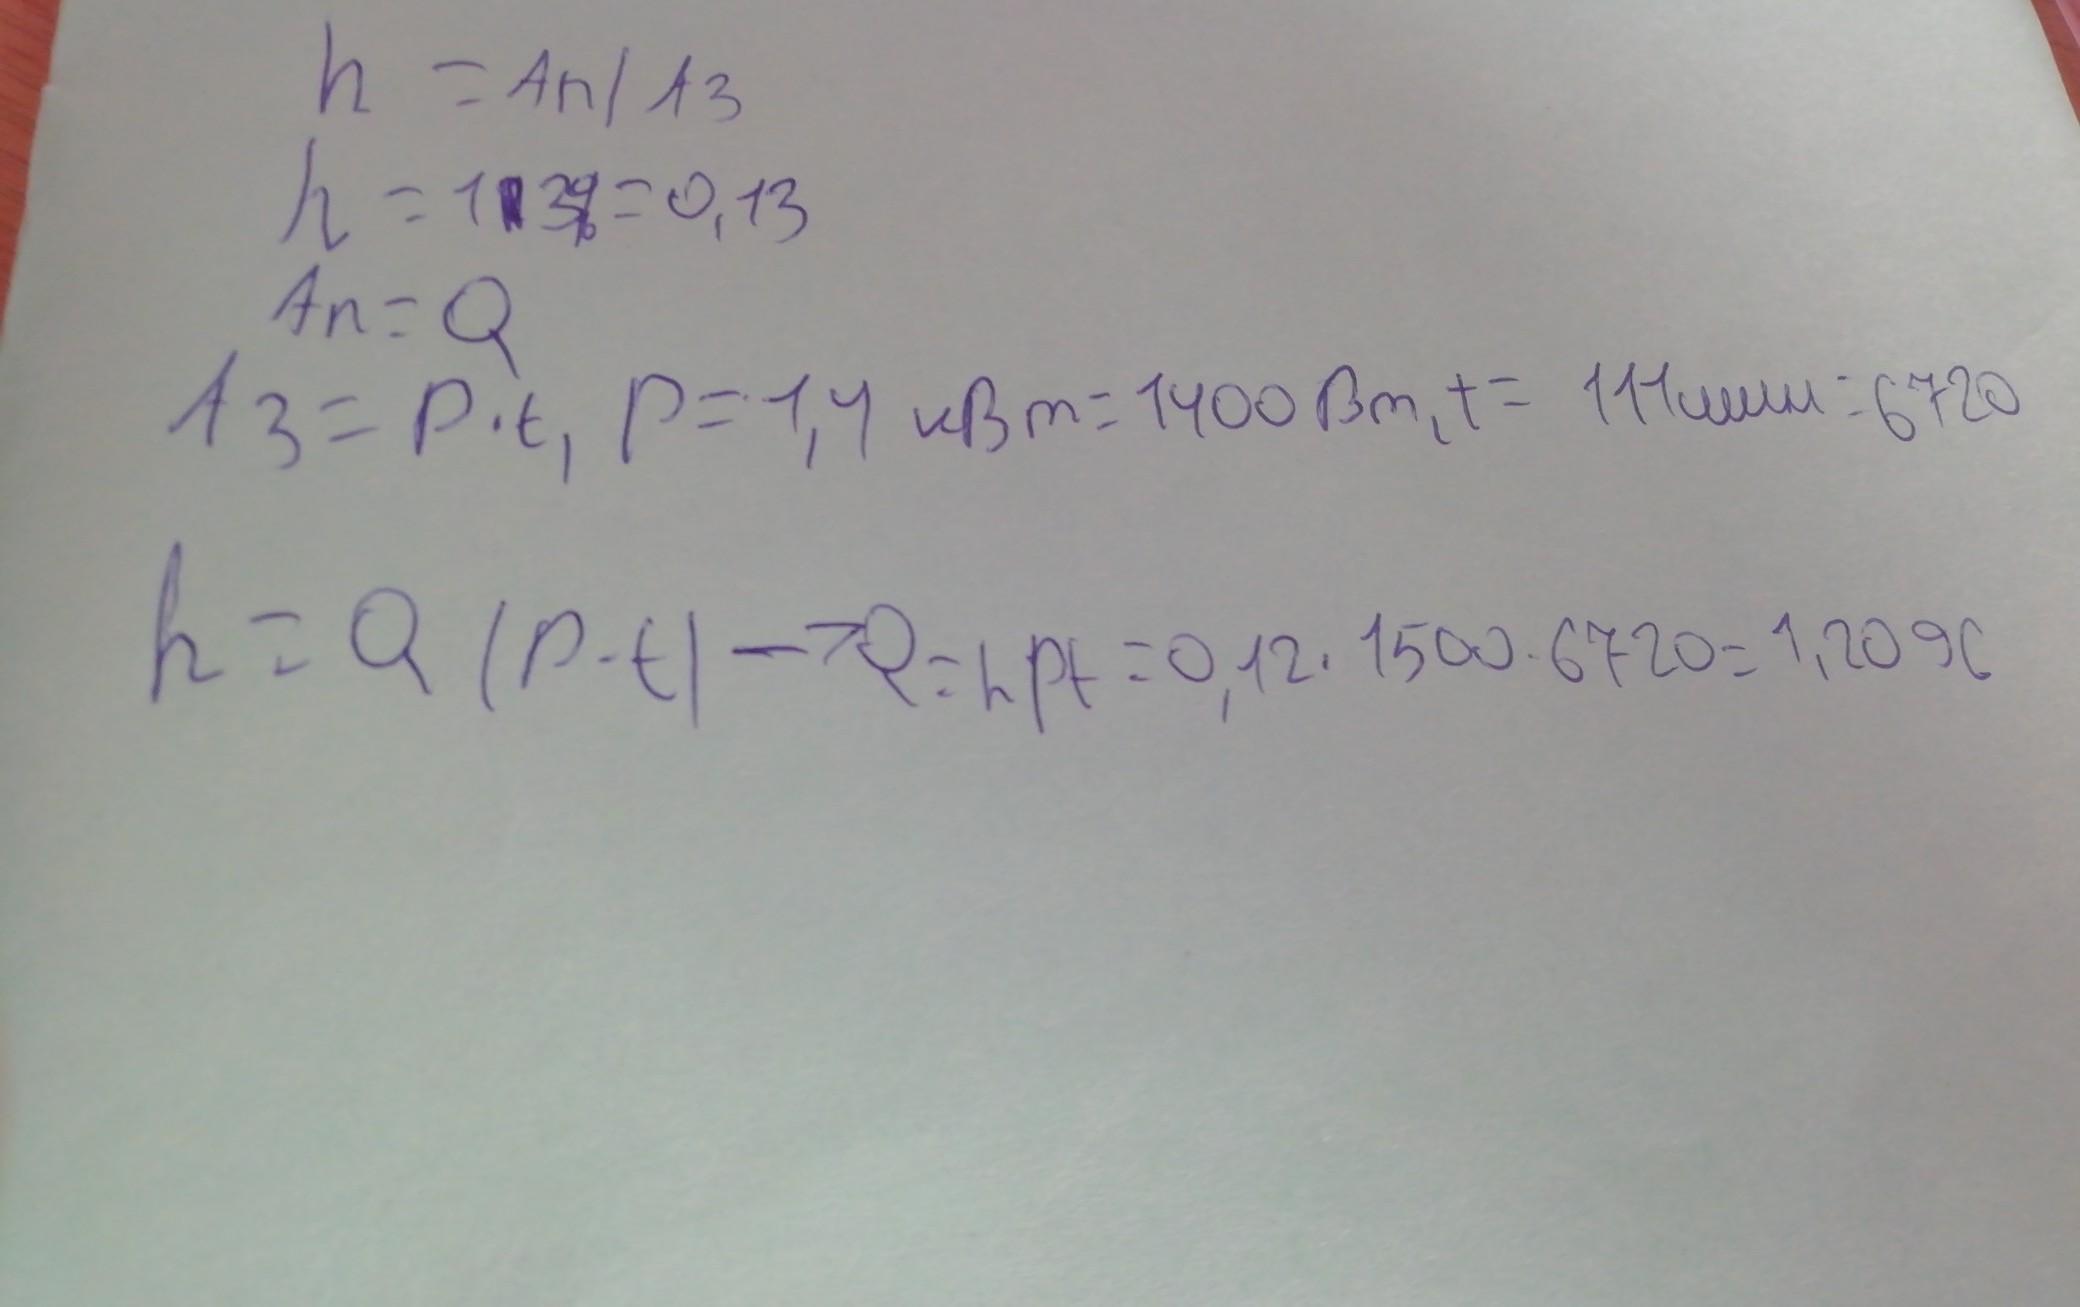 h = Ап/Аз
h = 13% = 0,13
Ап = Q
Аз = P·t, P = 1,4 кВт = 1400 Вт, t = 111 мин = 6720
h = Q/(P·t) → Q = hPt = 0,12·1500·6720 = 1,2096